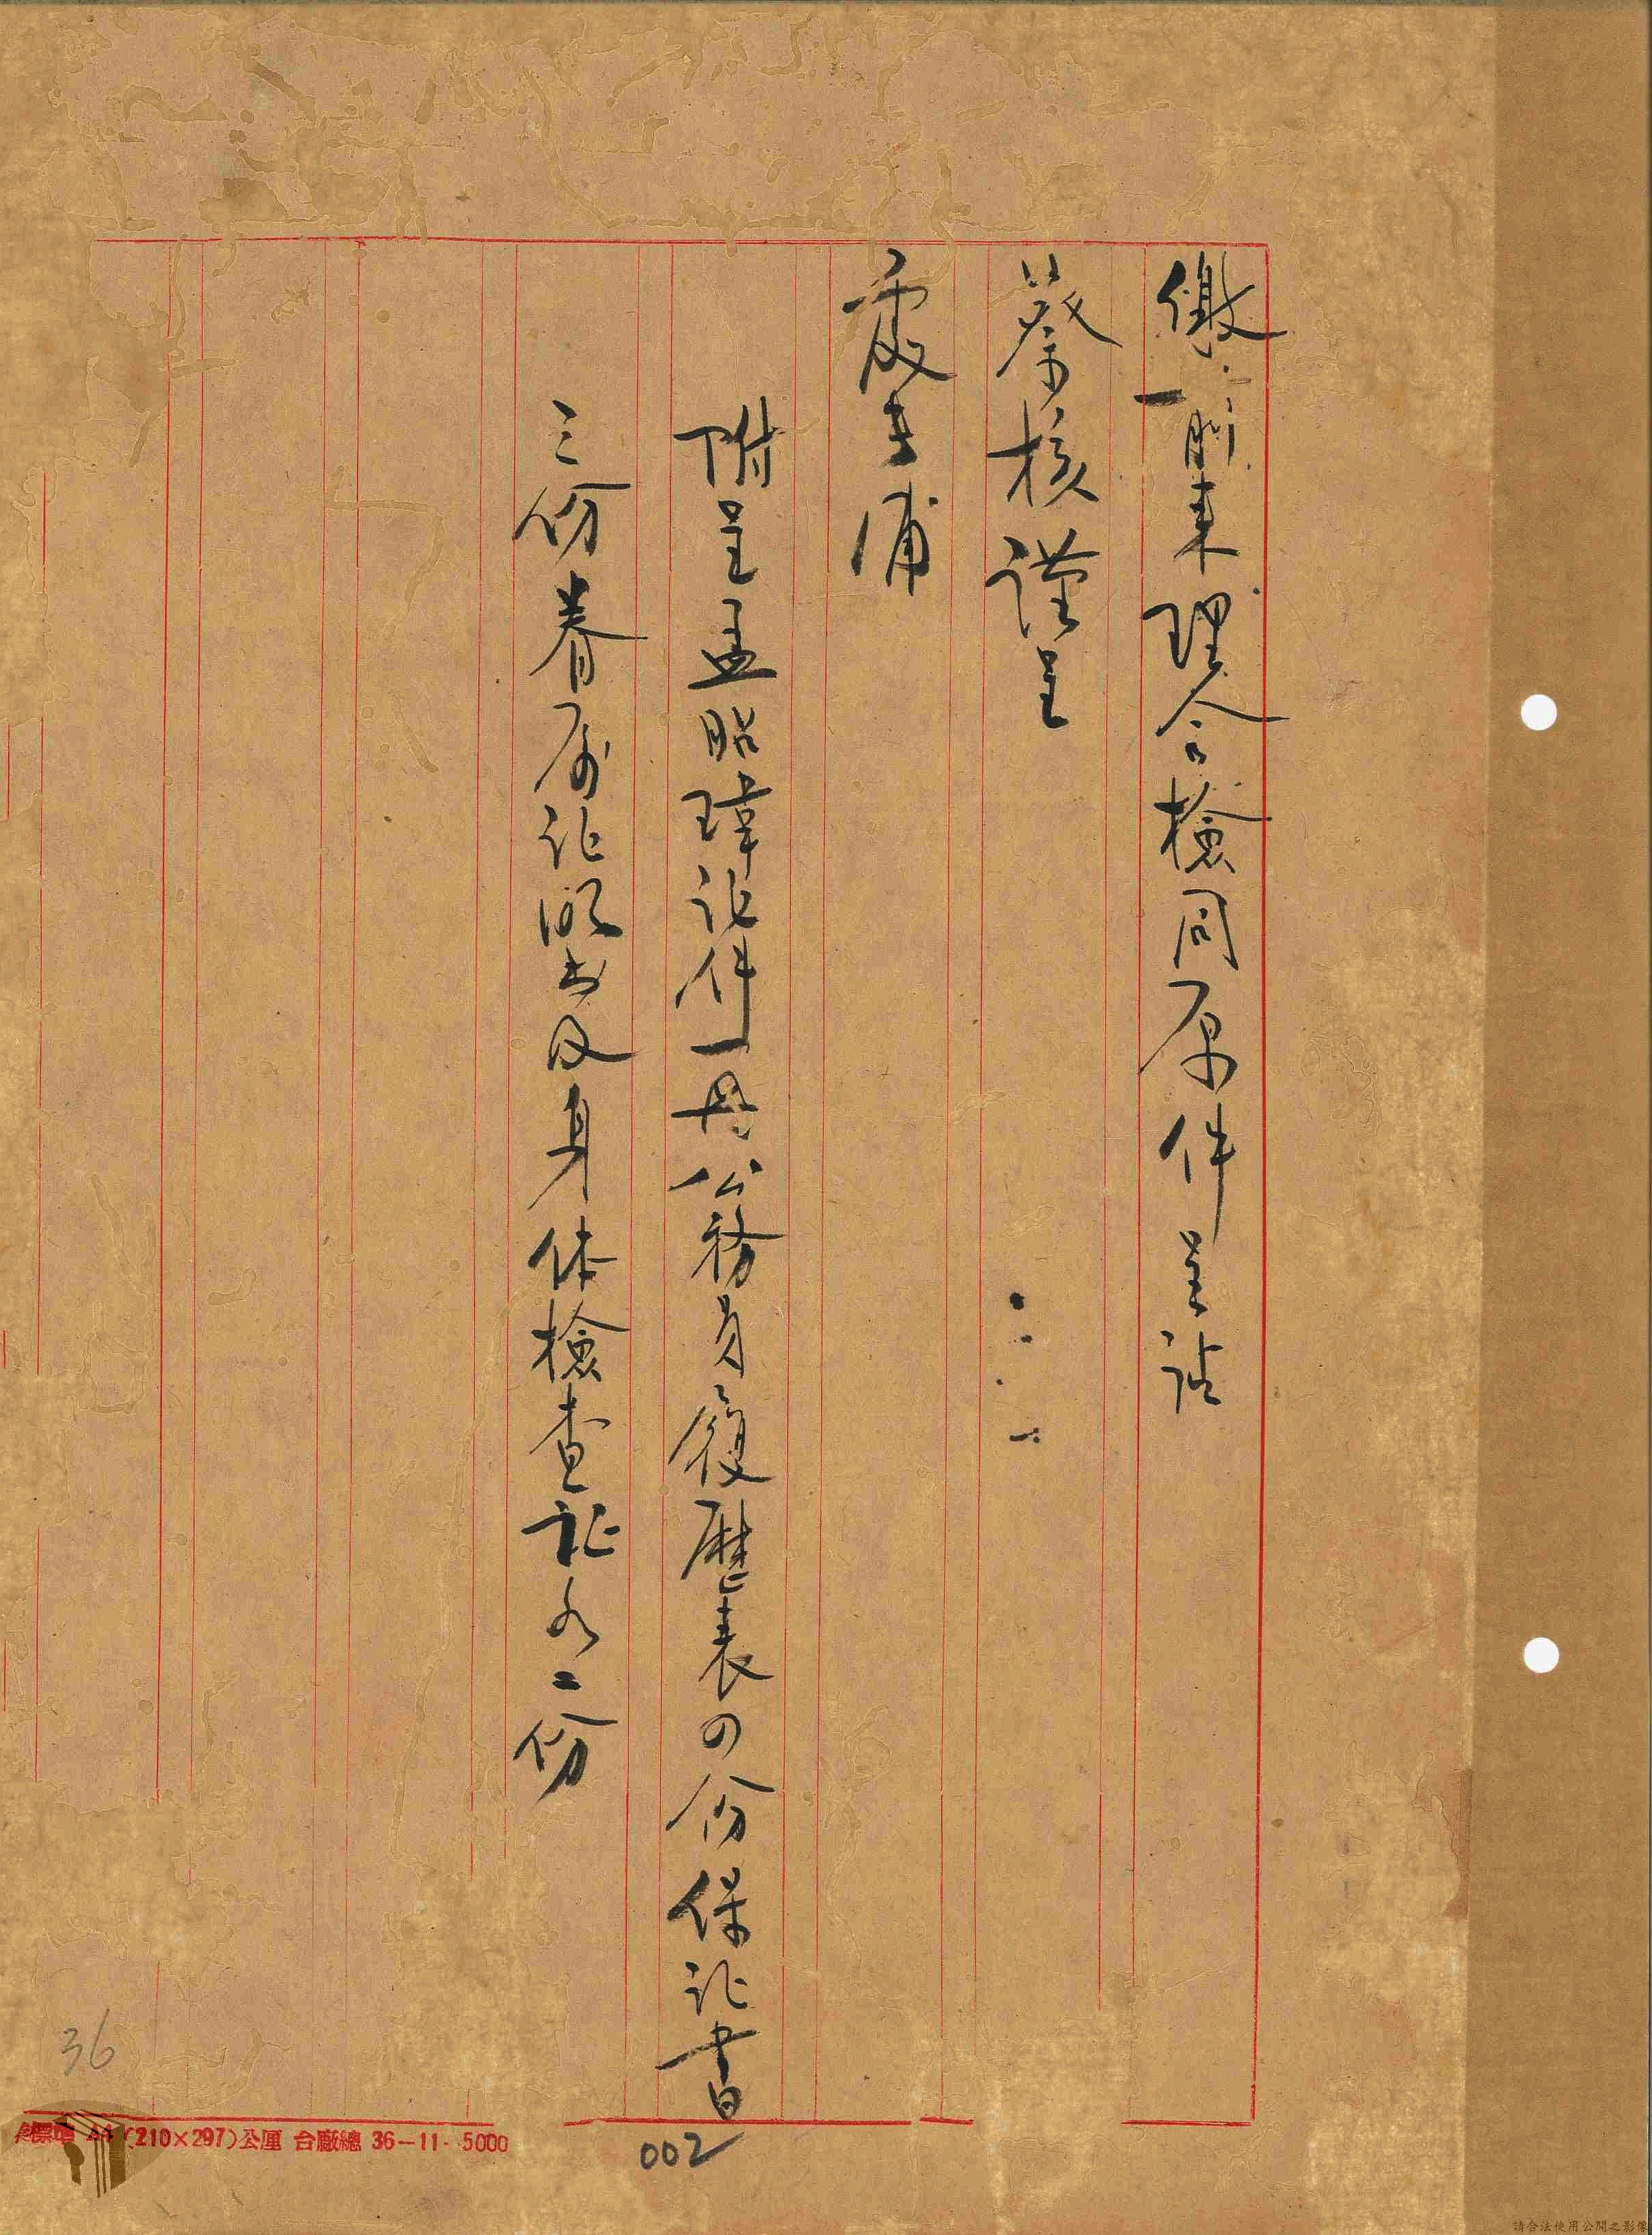 繳前來理合檢同原件呈請
詧核謹呈
處長浦
附呈孟昭瑋证件一冊公務員履歷表四份保证書
三份眷屬证明书及身体檢查证各二份
36
(210×297)公厘 台廠總 36-11. 5000
002
請合法使用公開之影像